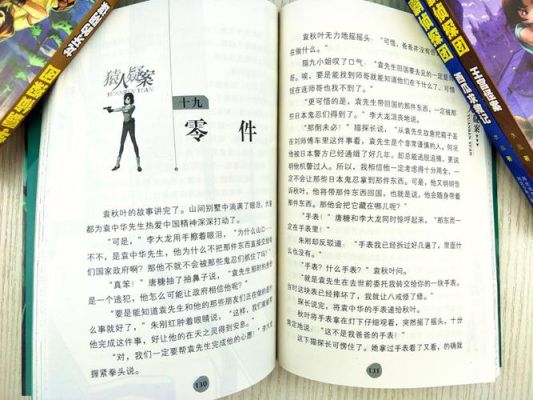 猿人疑案
YUANREN YI'AN
十九
零 件
袁秋叶的故事讲完了。山间别墅中满满了眼泪，大家
都为袁中华先生热爱中国精神深深打动了。
“可是，”李大龙用手擦着眼泪，“为什么山口一
不肯听袁中华先生，他为什么不把那件东西直接交给咱
们国家政府啊？那他不就不会被那些鬼忍们抓住了吗？”
“真笨！”唐糖抽了抽鼻子说，“袁先生那时候
是一个逃犯，他怎么可能让政府相信他呢？”
“要是能知道袁先生和他的那些朋友们正在做的
么事就好了，”朱刚红肿着眼睛说，“这样，我们
他完成这件事，好让他的在天之灵得到安息。”
“对，我们一定要帮袁先生完成他的心愿！”李大龙
握紧拳头说。
130
袁秋叶无力地摇摇头：“可惜，爸爸并没有
在做什么。”
猫九小姐叹了口气：“袁先生回国要去见的一定是
哥。唉，要是能找到师哥就能知道他们在干什么了，可
在连师哥也找不到了。”
“更可惜的是，袁先生带回国的那件东西，一定被那
些日本鬼忍们得到了。”李大龙沮丧地说。
“那倒未必！”猫探长说，“从袁先生故意把箱子丢
在刘师傅车里这件事看，袁先生是个非常谨慎的人，何况
他被日本警方已经通缉了好几年，却总能逃脱追捕，更说
明他机警过人。所以，我相信他一定考虑得十分周全，一
定不会让那些日本鬼忍拿到那件东西。可是，他又明明告
诉秋叶，他将带那件东西回国，也就是说，他会随身带着
那件东西。那么，他会把它藏在哪儿呢？”
“手表！”唐糖和李大龙同时惊呼起来，“那东西一
定在手表里！”
朱刚却反驳道：“手表我已经拆过好几遍了，里面什
么也没有。”
“手表？什么手表？”袁秋叶问。
“就是袁先生在去世前委托我转交给你的一块手表，
当时这块表已经摔坏了，我就让八戒修了修。”
探长说完，将袁中华的手表递给秋叶。
秋叶将手表拿在灯下仔细观看，突然摇了摇头，十分
肯定地说：“这不是我爸爸的手表！”
这下猫探长可愣住了。她拿过手表看了又看，的确就
131